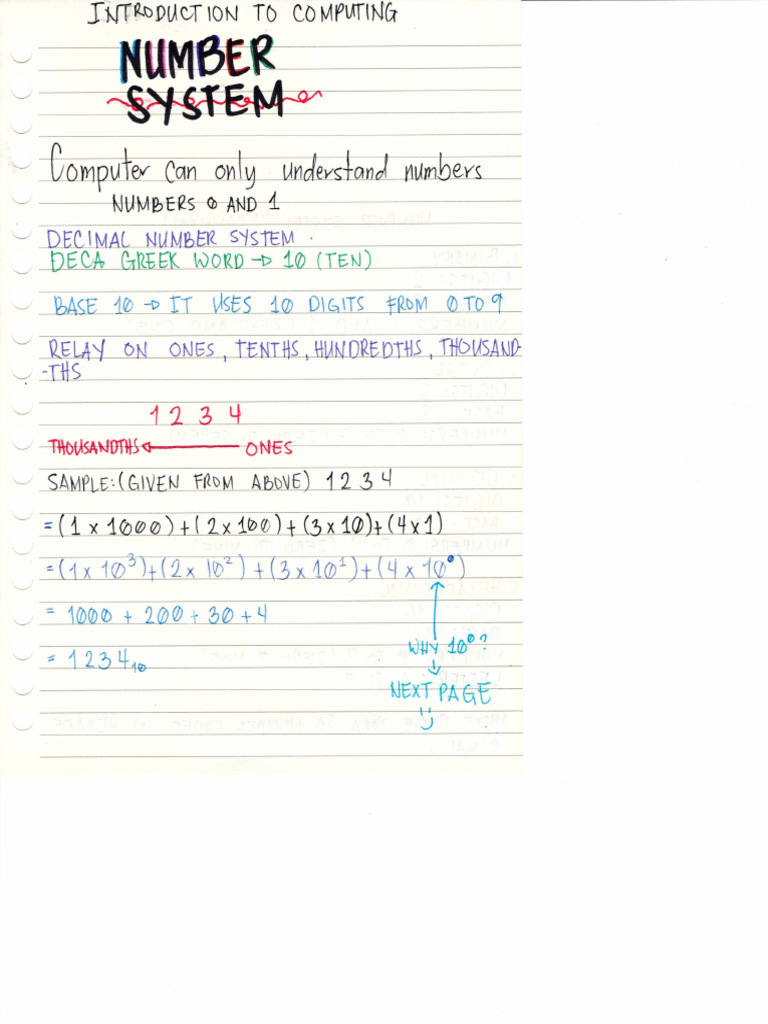 INTRODUCTION TO COMPUTING
NUMBER
SYSTEM
Computer can only understand numbers
NUMBERS 0 AND 1
DECIMAL NUMBER SYSTEM.
DECA GREEK WORD → 10 (TEN)
BASE 10 → IT USES 10 DIGITS FROM 0 TO 9
RELAY ON ONES, TENTHS, HUNDREDTHS, THOUSAND-
-THS
1 2 3 4
THOUSANDTHS ← ONES
SAMPLE: (GIVEN FROM ABOVE) 1 2 3 4
= (1 x 1000) + (2 x 100) + (3 x 10) + (4 x 1)
= (1 x 10³) + (2 x 10²) + (3 x 10¹) + (4 x 10⁰)
= 1000 + 200 + 30 + 4
WHY 10⁰?
= 1234₁₀
NEXT PAGE
:)